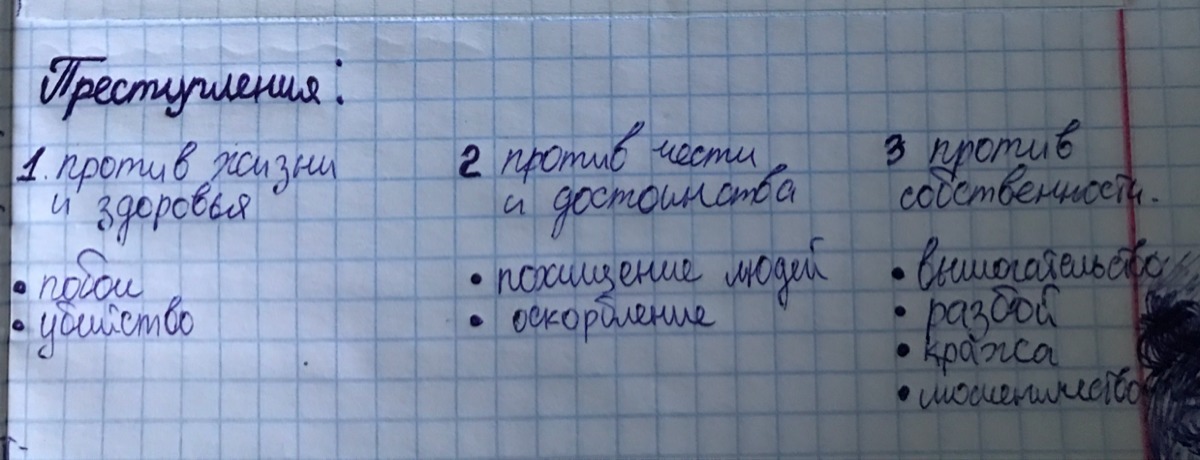 Преступления:
1. против жизни
и здоровья
• побои
• убийство
2 против чести
и достоинства
• похищение людей
• оскорбление
3 против
собственности.
• вымогательство
• разбой
• кража
• мошеничество